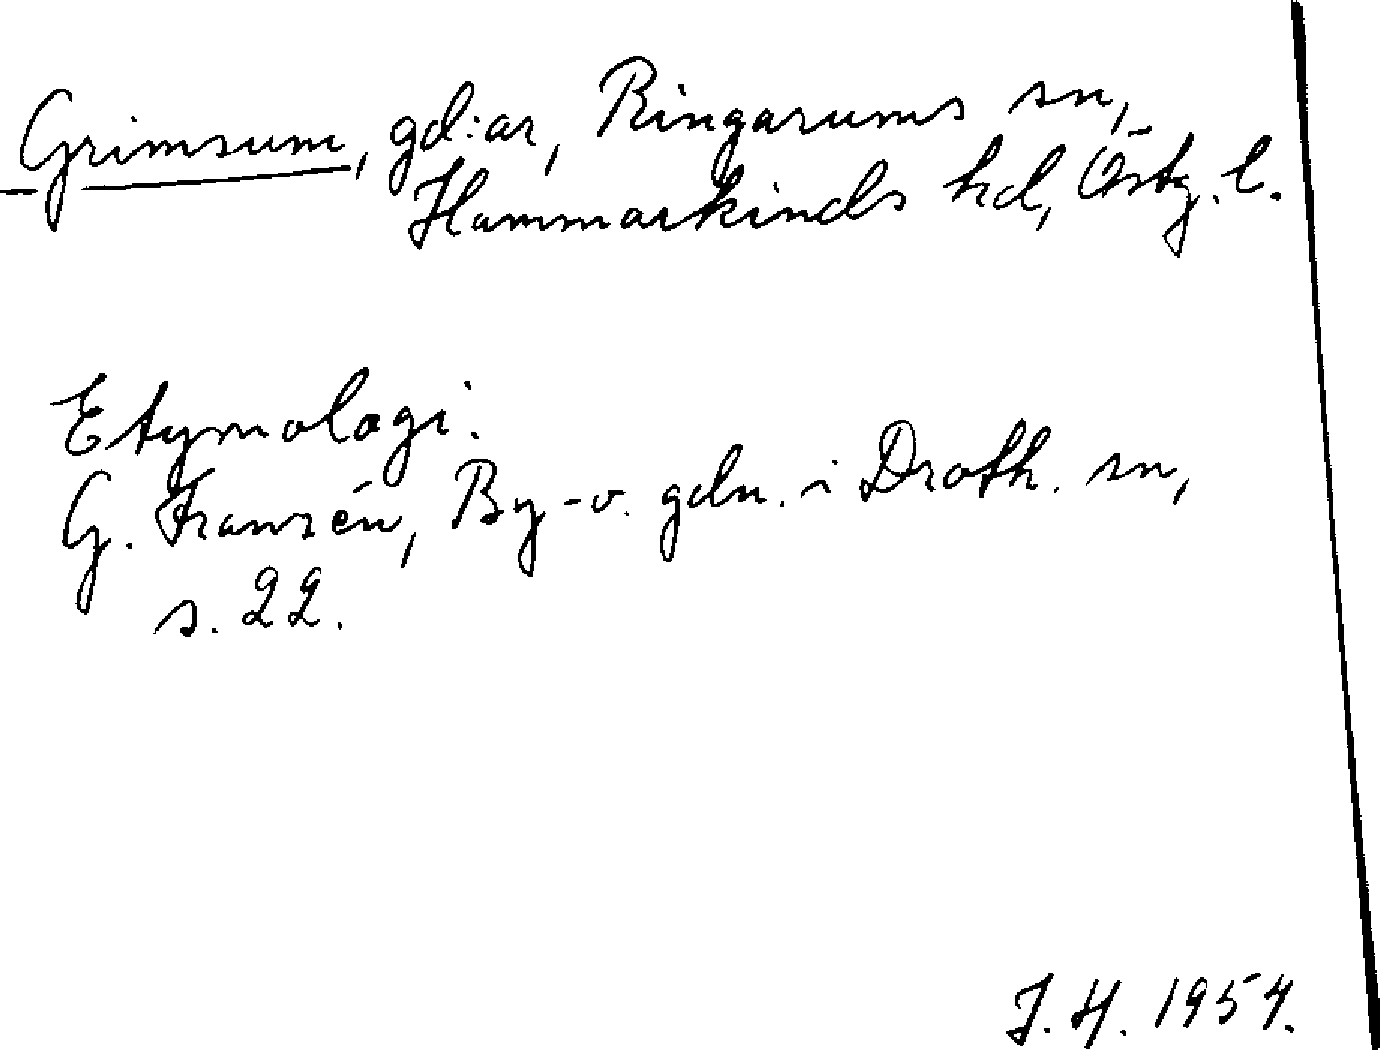 Grimsum, gd:ar, Ringarums sn,
Hammarkinds hd, Östg. l.
Etymologi.
G. Franzén, By -o. gdn. i Droth. sn,
s. 22.
J. H. 1954.